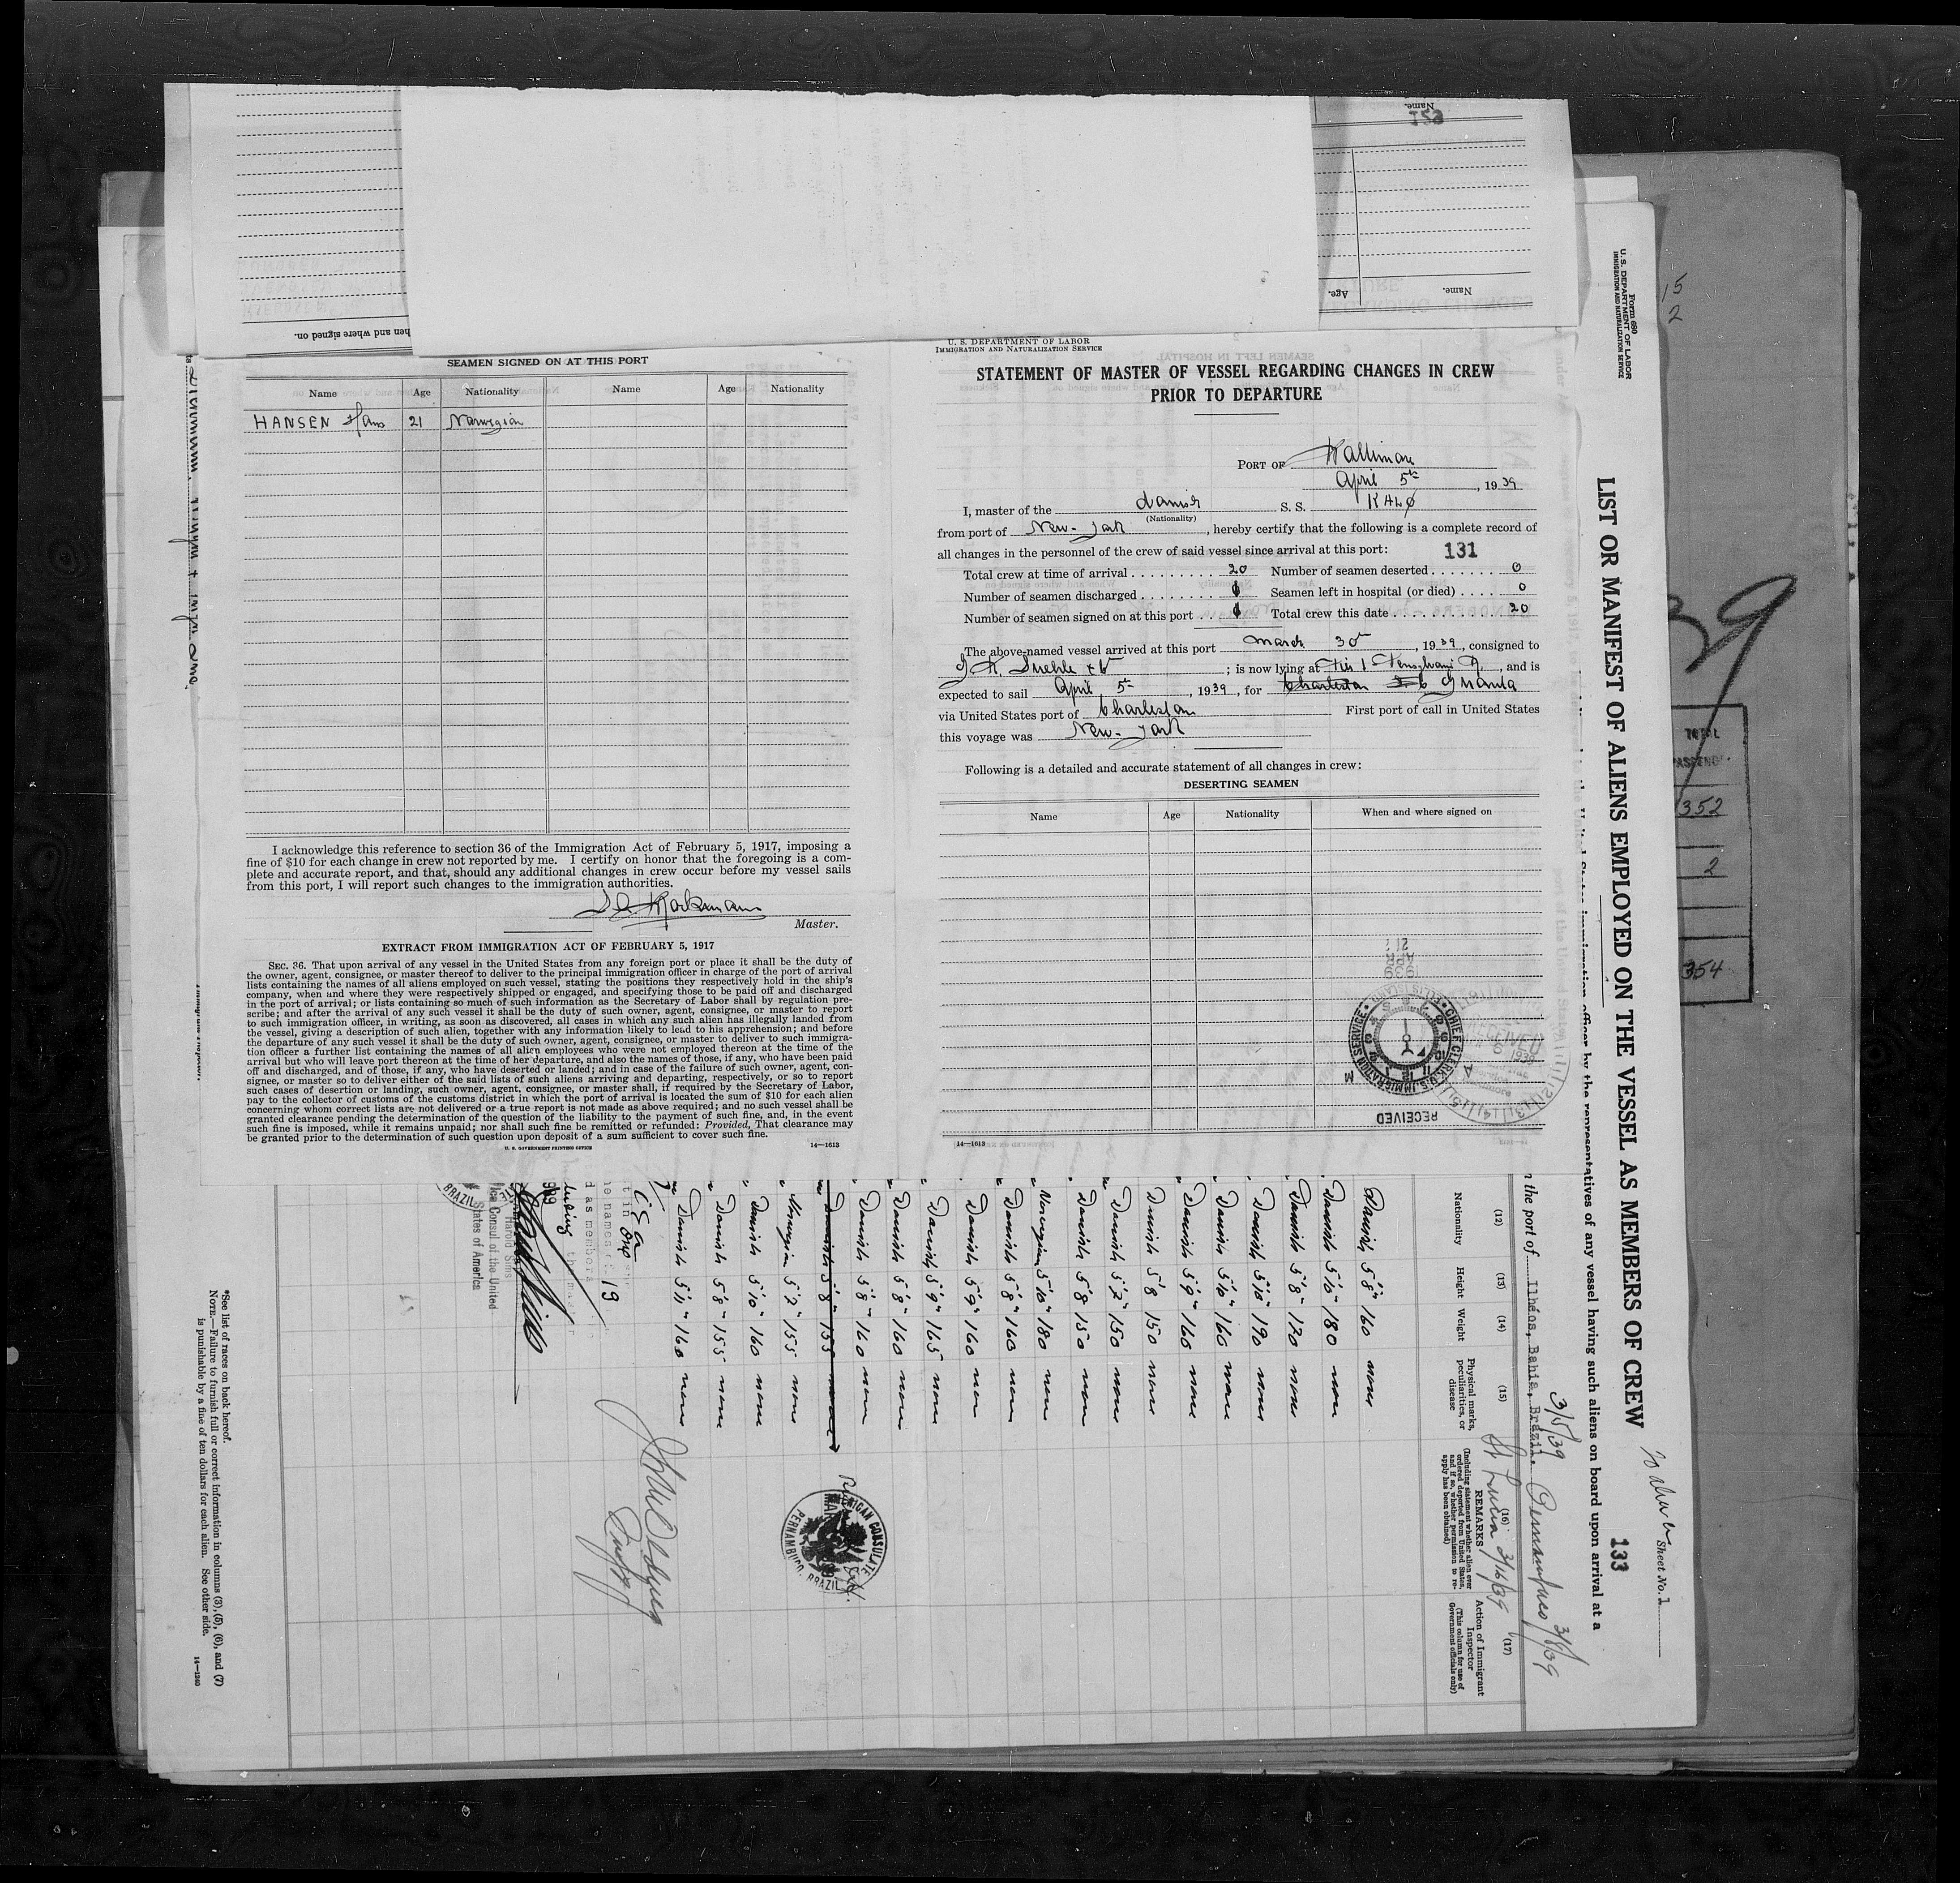 SEAMEN SIGNED ON AT THIS PORT
Name Age Nationality Name Age Nationality
HANSEN Hans 21 Norwegian
I acknowledge this reference to section 36 of the Immigration Act of February 5, 1917, imposing a
fine of $10 for each change in crew not reported by me. I certify on honor that the foregoing is a com-
plete and accurate report, and that, should any additional changes in crew occur before my vessel sails
from this port, I will report such changes to the immigration authorities.
Master.
EXTRACT FROM IMMIGRATION ACT OF FEBRUARY 5, 1917
SEC. 36. That upon arrival of any vessel in the United States from any foreign port or place it shall be the duty of
the owner, agent, consignee, or master thereof to deliver to the principal immigration officer in charge of the port of arrival
lists containing the names of all aliens employed on such vessel, stating the positions they respectively hold in the ship's
company, when and where they were respectively shipped or engaged, and specifying those to be paid off and discharged
in the port of arrival; or lists containing so much of such information as the Secretary of Labor shall by regulation pre-
scribe; and after the arrival of any such vessel it shall be the duty of such owner, agent, consignee, or master to report
to such immigration officer, in writing, as soon as discovered, all cases in which any such alien has illegally landed from
the vessel, giving a description of such alien, together with any information likely to lead to his apprehension; and before
the departure of any such vessel it shall be the duty of such owner, agent, consignee, or master to deliver to such immigra-
tion officer a further list containing the names of all alien employees who were not employed thereon at the time of the
arrival but who will leave port thereon at the time of her departure, and also the names of those, if any, who have been paid
off and discharged, and of those, if any, who have deserted or landed; and in case of the failure of such owner, agent, con-
signee, or master so to deliver either of the said lists of such aliens arriving and departing, respectively, or so to report
such cases of desertion or landing, such owner, agent, consignee, or master shall, if required by the Secretary of Labor,
pay to the collector of customs of the customs district in which the port of arrival is located the sum of $10 for each alien
concerning whom correct lists are not delivered or a true report is not made as above required; and no such vessel shall be
granted clearance pending the determination of the question of the liability to the payment of such fine, and, in the event
such fine is imposed, while it remains unpaid; nor shall such fine be remitted or refunded: Provided, That clearance may
be granted prior to the determination of such question upon deposit of a sum sufficient to cover such fine.
U. S. GOVERNMENT PRINTING OFFICE 14—1613
U. S. DEPARTMENT OF LABOR
IMMIGRATION AND NATURALIZATION SERVICE
STATEMENT OF MASTER OF VESSEL REGARDING CHANGES IN CREW
PRIOR TO DEPARTURE
PORT OF Baltimore
April 5th, 1939
I, master of the danish S. S. KALØ
(Nationality)
from port of New-York, hereby certify that the following is a complete record of
all changes in the personnel of the crew of said vessel since arrival at this port: 131
Total crew at time of arrival 20 Number of seamen deserted 0
Number of seamen discharged 1 Seamen left in hospital (or died) 0
Number of seamen signed on at this port 1 Total crew this date 20
The above-named vessel arrived at this port march 30th, 1939, consigned to
; is now lying at Pier 1, and is
expected to sail April 5th, 1939, for Charleston
via United States port of Charleston First port of call in United States
this voyage was New-York
Following is a detailed and accurate statement of all changes in crew:
DESERTING SEAMEN
Name Age Nationality When and where signed on
RECEIVED
CHIEF CLERK, U.S. IMMIGRATION SERVICE
APR
1939
14—1613
Name.
Age.
Name.
hen and where signed on.
Form 680
U. S. DEPARTMENT OF LABOR
IMMIGRATION AND NATURALIZATION SERVICE
LIST OR MANIFEST OF ALIENS EMPLOYED ON THE VESSEL AS MEMBERS OF CREW
133
Sheet No. 1
officer by the representatives of any vessel having such aliens on board upon arrival at a
the port of Ilhéos, Bahia, Brazil. 3/5/39 Pernambuco 3/8/39
St Lucia 3/16/39
(12) (13) (14) (15) (16) (17)
Nationality
Height
Weight
Physical marks, peculiarities, or disease
REMARKS
(Including statement whether alien ever ordered deported from United States, and if so, whether permission to re-apply has been obtained)
Action of Immigrant Inspector
(This column for use of Government officials only)
Danish 5'8" 160 none
Danish 5'10" 180 none
Danish 5'8" 170 none
Danish 5'10" 190 none
Danish 5'10" 160 none
Danish 5'9" 160 none
Danish 5'8 150 none
Danish 5'7" 150 none
Danish 5'8 150 none
Norwegian 5'10" 180 none
Danish 5'8" 160 none
Danish 5'9" 160 none
Danish 5'9" 165 none
Danish 5'8" 160 none
Danish 5'8" 160 none
Danish 5'8" 155 none
Norwegian 5'7" 155 none
Danish 5'10" 160 none
Danish 5'8" 155 none
Danish 5'11" 160 none
AMERICAN CONSULATE
PERNAMBUCO, BRAZIL
19
Harold Sims
Consul of the United
States of America
*See list of races on back hereof.
NOTE.—Failure to furnish full or correct information in columns (3), (5), (6), and (7)
is punishable by a fine of ten dollars for each alien. See other side.
14—1240
15
2
39
TOTAL
352
2
354